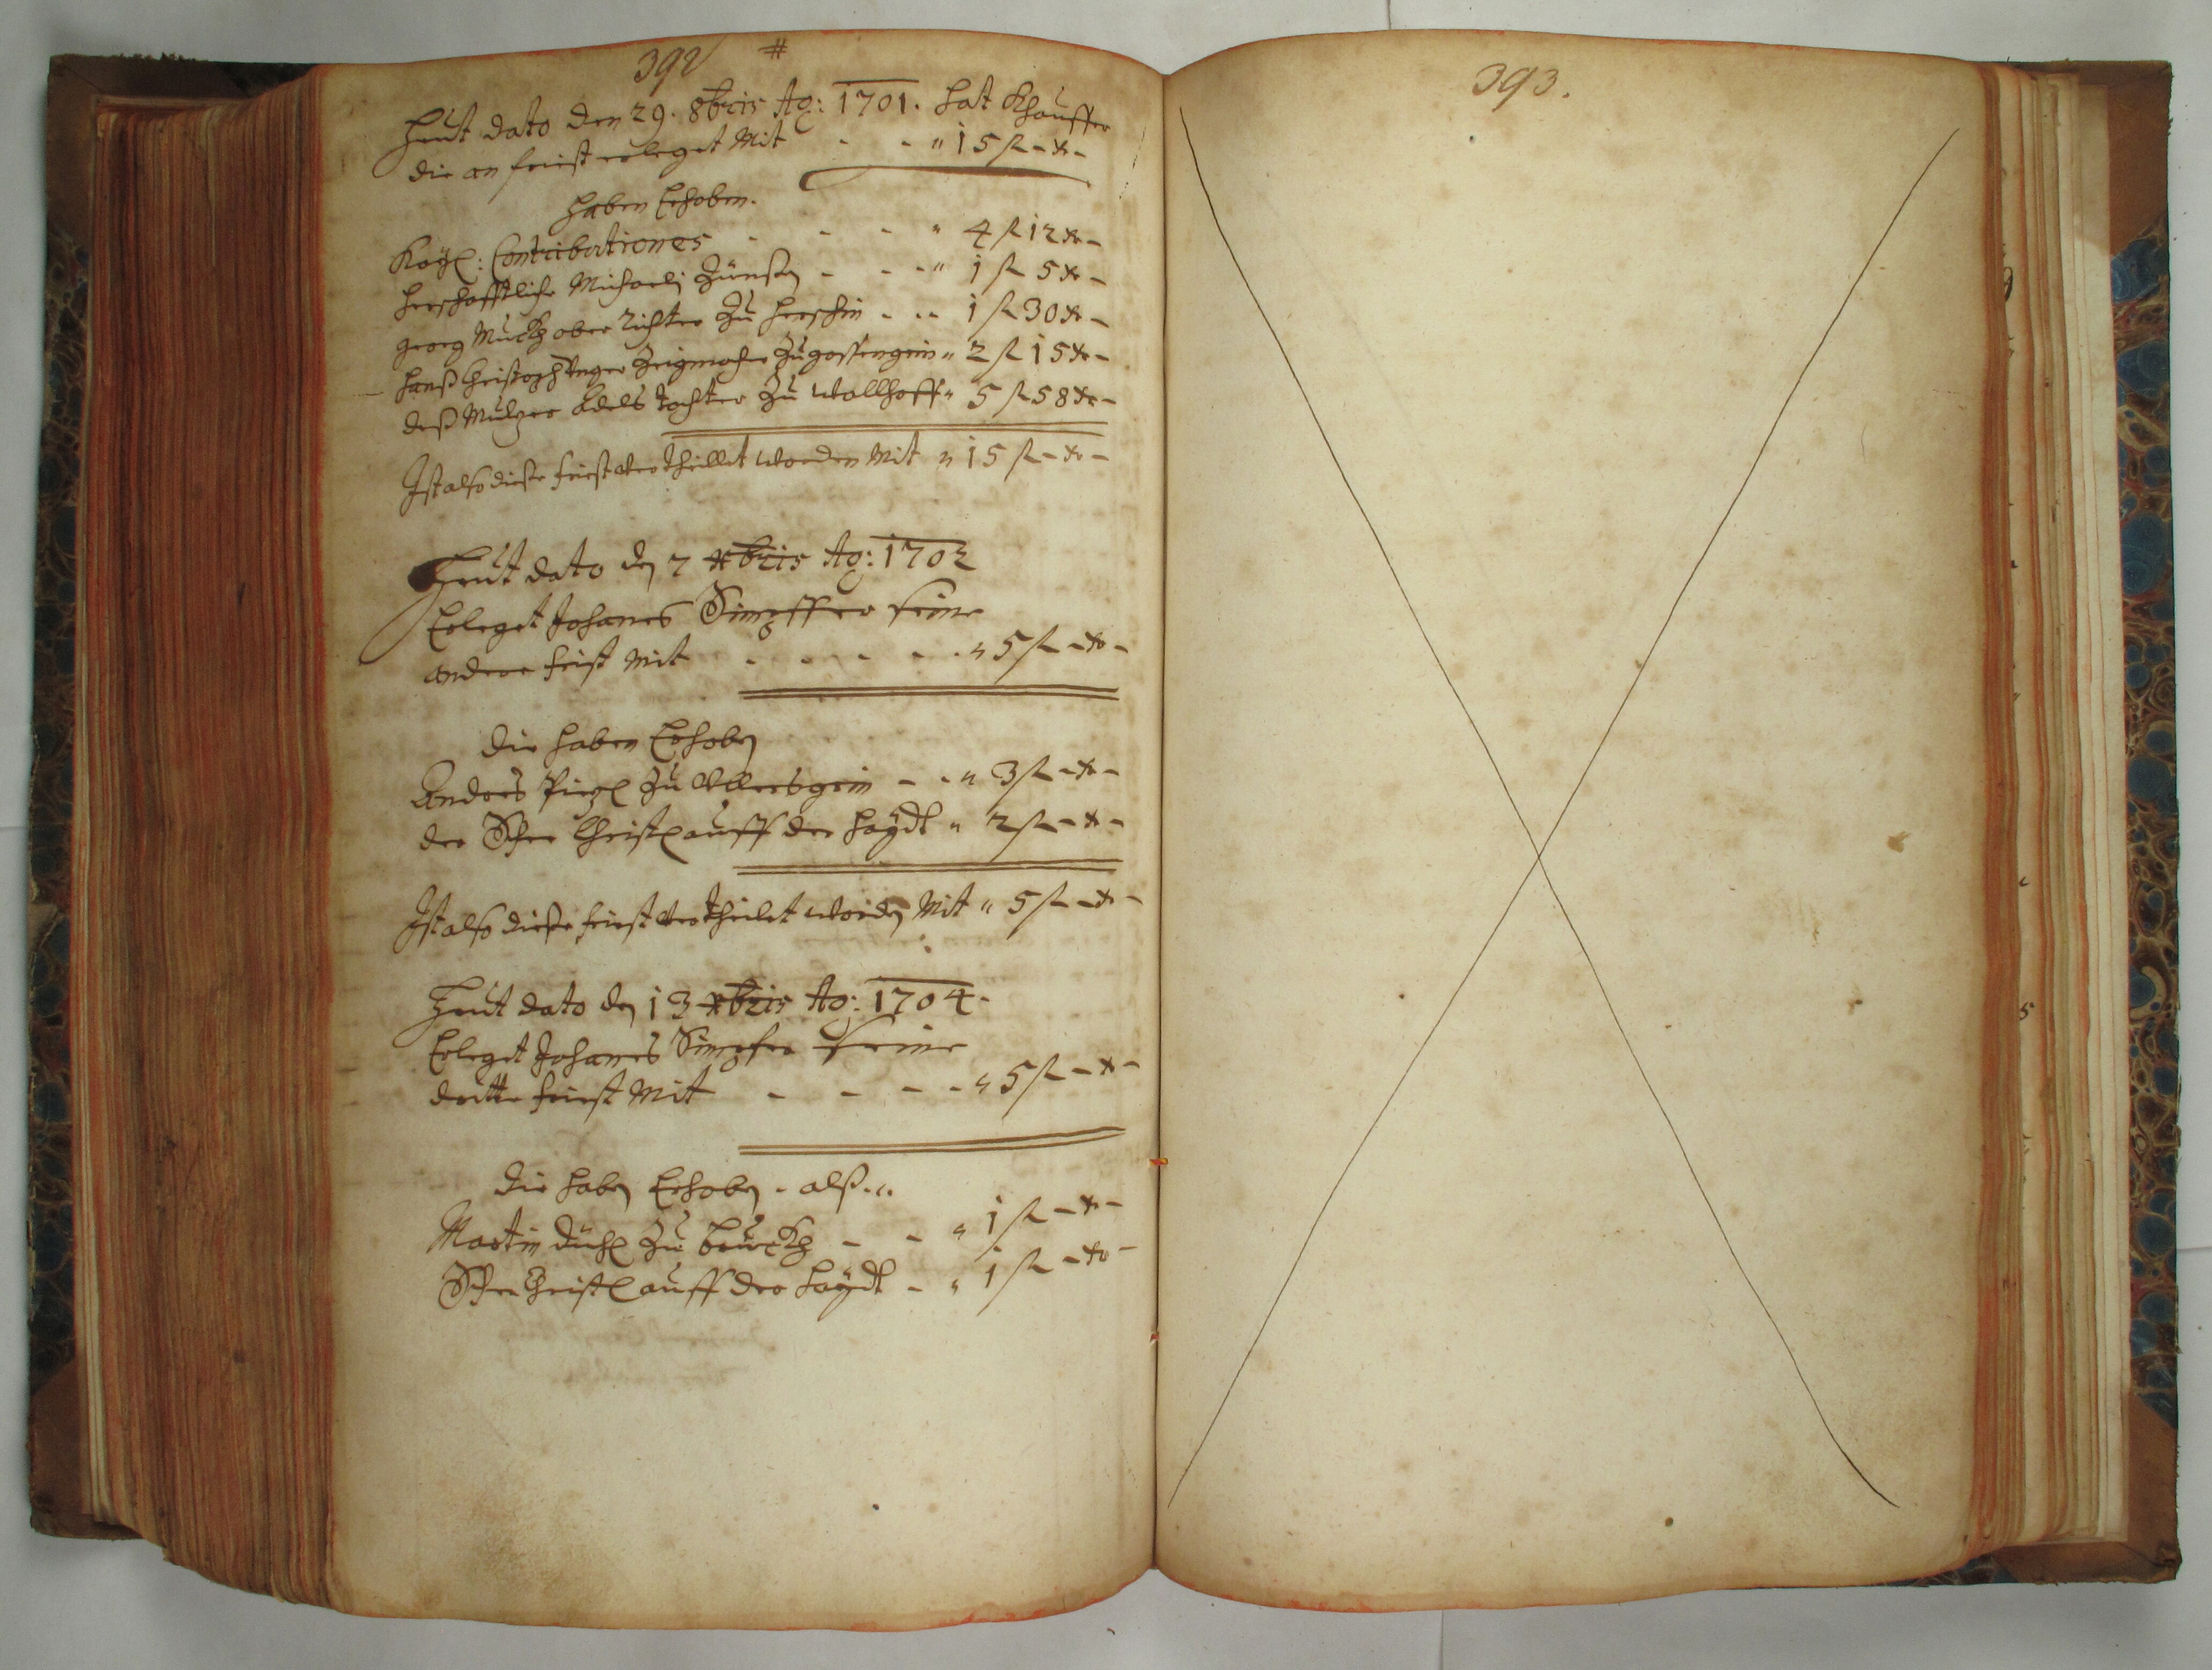 392 #
Heut dato den 29. 8bris Ao: 1701. hat Khauffer
die an friest erleget Mit - - " 15 fl - xr -
haben Erhoben.
Kayl: Contributiones - - - " 4 fl 12 xr -
herschafftliche Michaeli Zünßen - - - " 1 fl 5 xr -
Georg ober Richter Zu - - - 1 fl 30 xr -
Hanß Christoph Unger Zu " 2 fl 15 xr -
deß Adels Tochter Zu Wallhoff " 5 fl 58 xr -
Ist also dieße friest vertheillet worden Mit " 15 fl - xr -
Heut dato den 7 xbris Ao: 1702
Erleget Johanes seine
andere frist Mit - - - - - " 5 fl - xr -
die haben Erhoben
Andres Zu - - " 3 fl - xr -
der Christl auff der Haydt " 2 fl - xr -
Ist also dieße friest vertheilet worden Mit " 5 fl - xr -
Heut dato den 13 xbris Ao: 1704.
Erleget Johanes seine
dritte friest Mit - - - - " 5 fl - xr -
die haben Erhoben - alß.
Martin Zu - - " 1 fl - xr -
Christl auff der Haydt - " 1 fl - xr -
393.